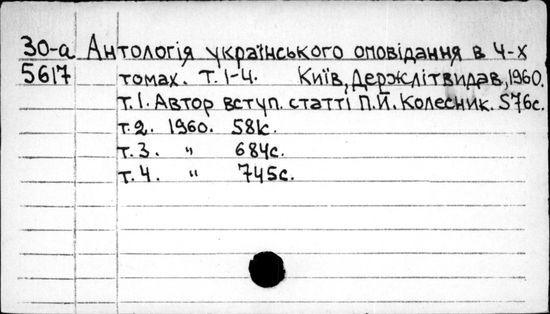 30-а Антологія українського оповідання в 4-х
5617 томах. Т. 1-4. Київ, Держлітвидав, 1960.
т. 1. Автор вступ. статті П.Й. Колесник. 576с.
т. 2. 1960. 581с.
т. 3. " 684с.
т. 4. " 745с.